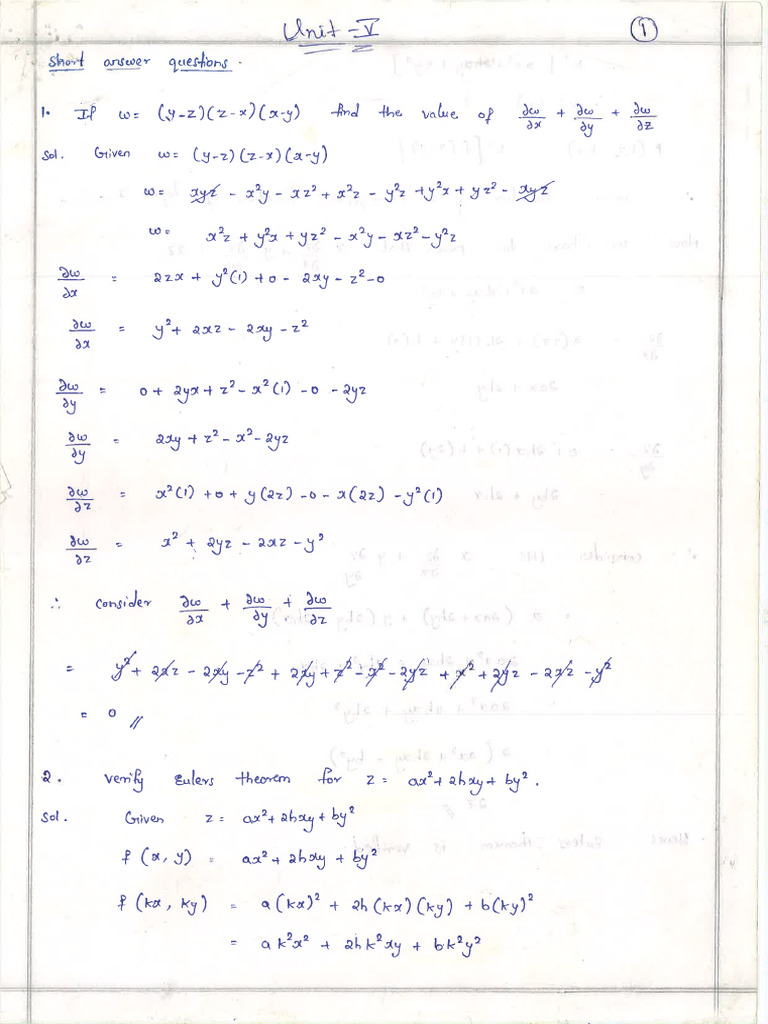 Unit-V
1
Short answer questions.
1. If w= (y-z)(z-x)(x-y) find the value of ∂w/∂x + ∂w/∂y + ∂w/∂z
Sol. Given w= (y-z)(z-x)(x-y)
w= xyz - x²y - xz² + x²z - y²z + y²x + yz² - xyz
w= x²z + y²x + yz² - x²y - xz² - y²z
∂w/∂x = 2zx + y²(1) + 0 - 2xy - z² - 0
∂w/∂x = y² + 2xz - 2xy - z²
∂w/∂y = 0 + 2yx + z² - x²(1) - 0 - 2yz
∂w/∂y = 2xy + z² - x² - 2yz
∂w/∂z = x²(1) + 0 + y(2z) - 0 - x(2z) - y²(1)
∂w/∂z = x² + 2yz - 2xz - y²
∴ consider ∂w/∂x + ∂w/∂y + ∂w/∂z
= y² + 2xz - 2xy - z² + 2xy + z² - x² - 2yz + x² + 2yz - 2xz - y²
= 0 //
2. Verify Eulers theorem for z= ax² + 2hxy + by².
Sol. Given z= ax² + 2hxy + by²
f(x, y) = ax² + 2hxy + by²
f(kx, ky) = a(kx)² + 2h(kx)(ky) + b(ky)²
= ak²x² + 2hk²xy + bk²y²